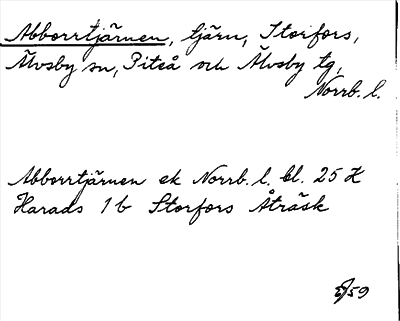 Abborrtjärnen, tjärn, Storfors,
Älvsby sn, Piteå och Älvsby tg,
Norrb. l.
Abborrtjärnen ek Norrb. l. bl. 25 K
Harads 1b Storfors Åträsk
/59